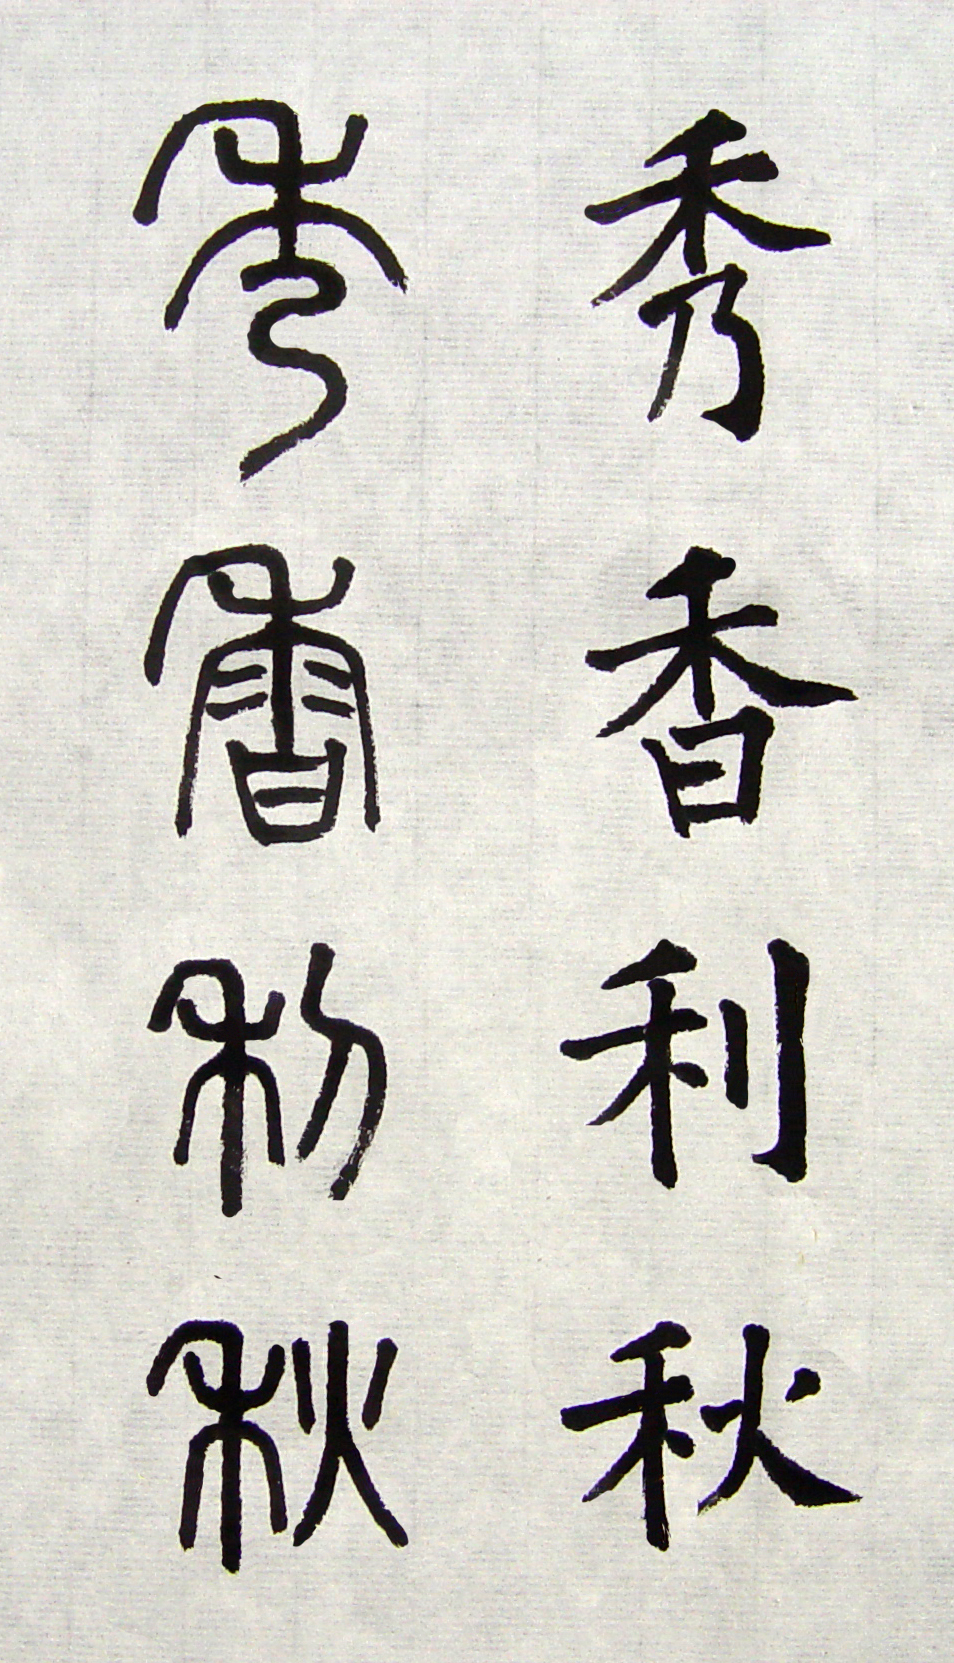 秀香利秋
秀香利秋